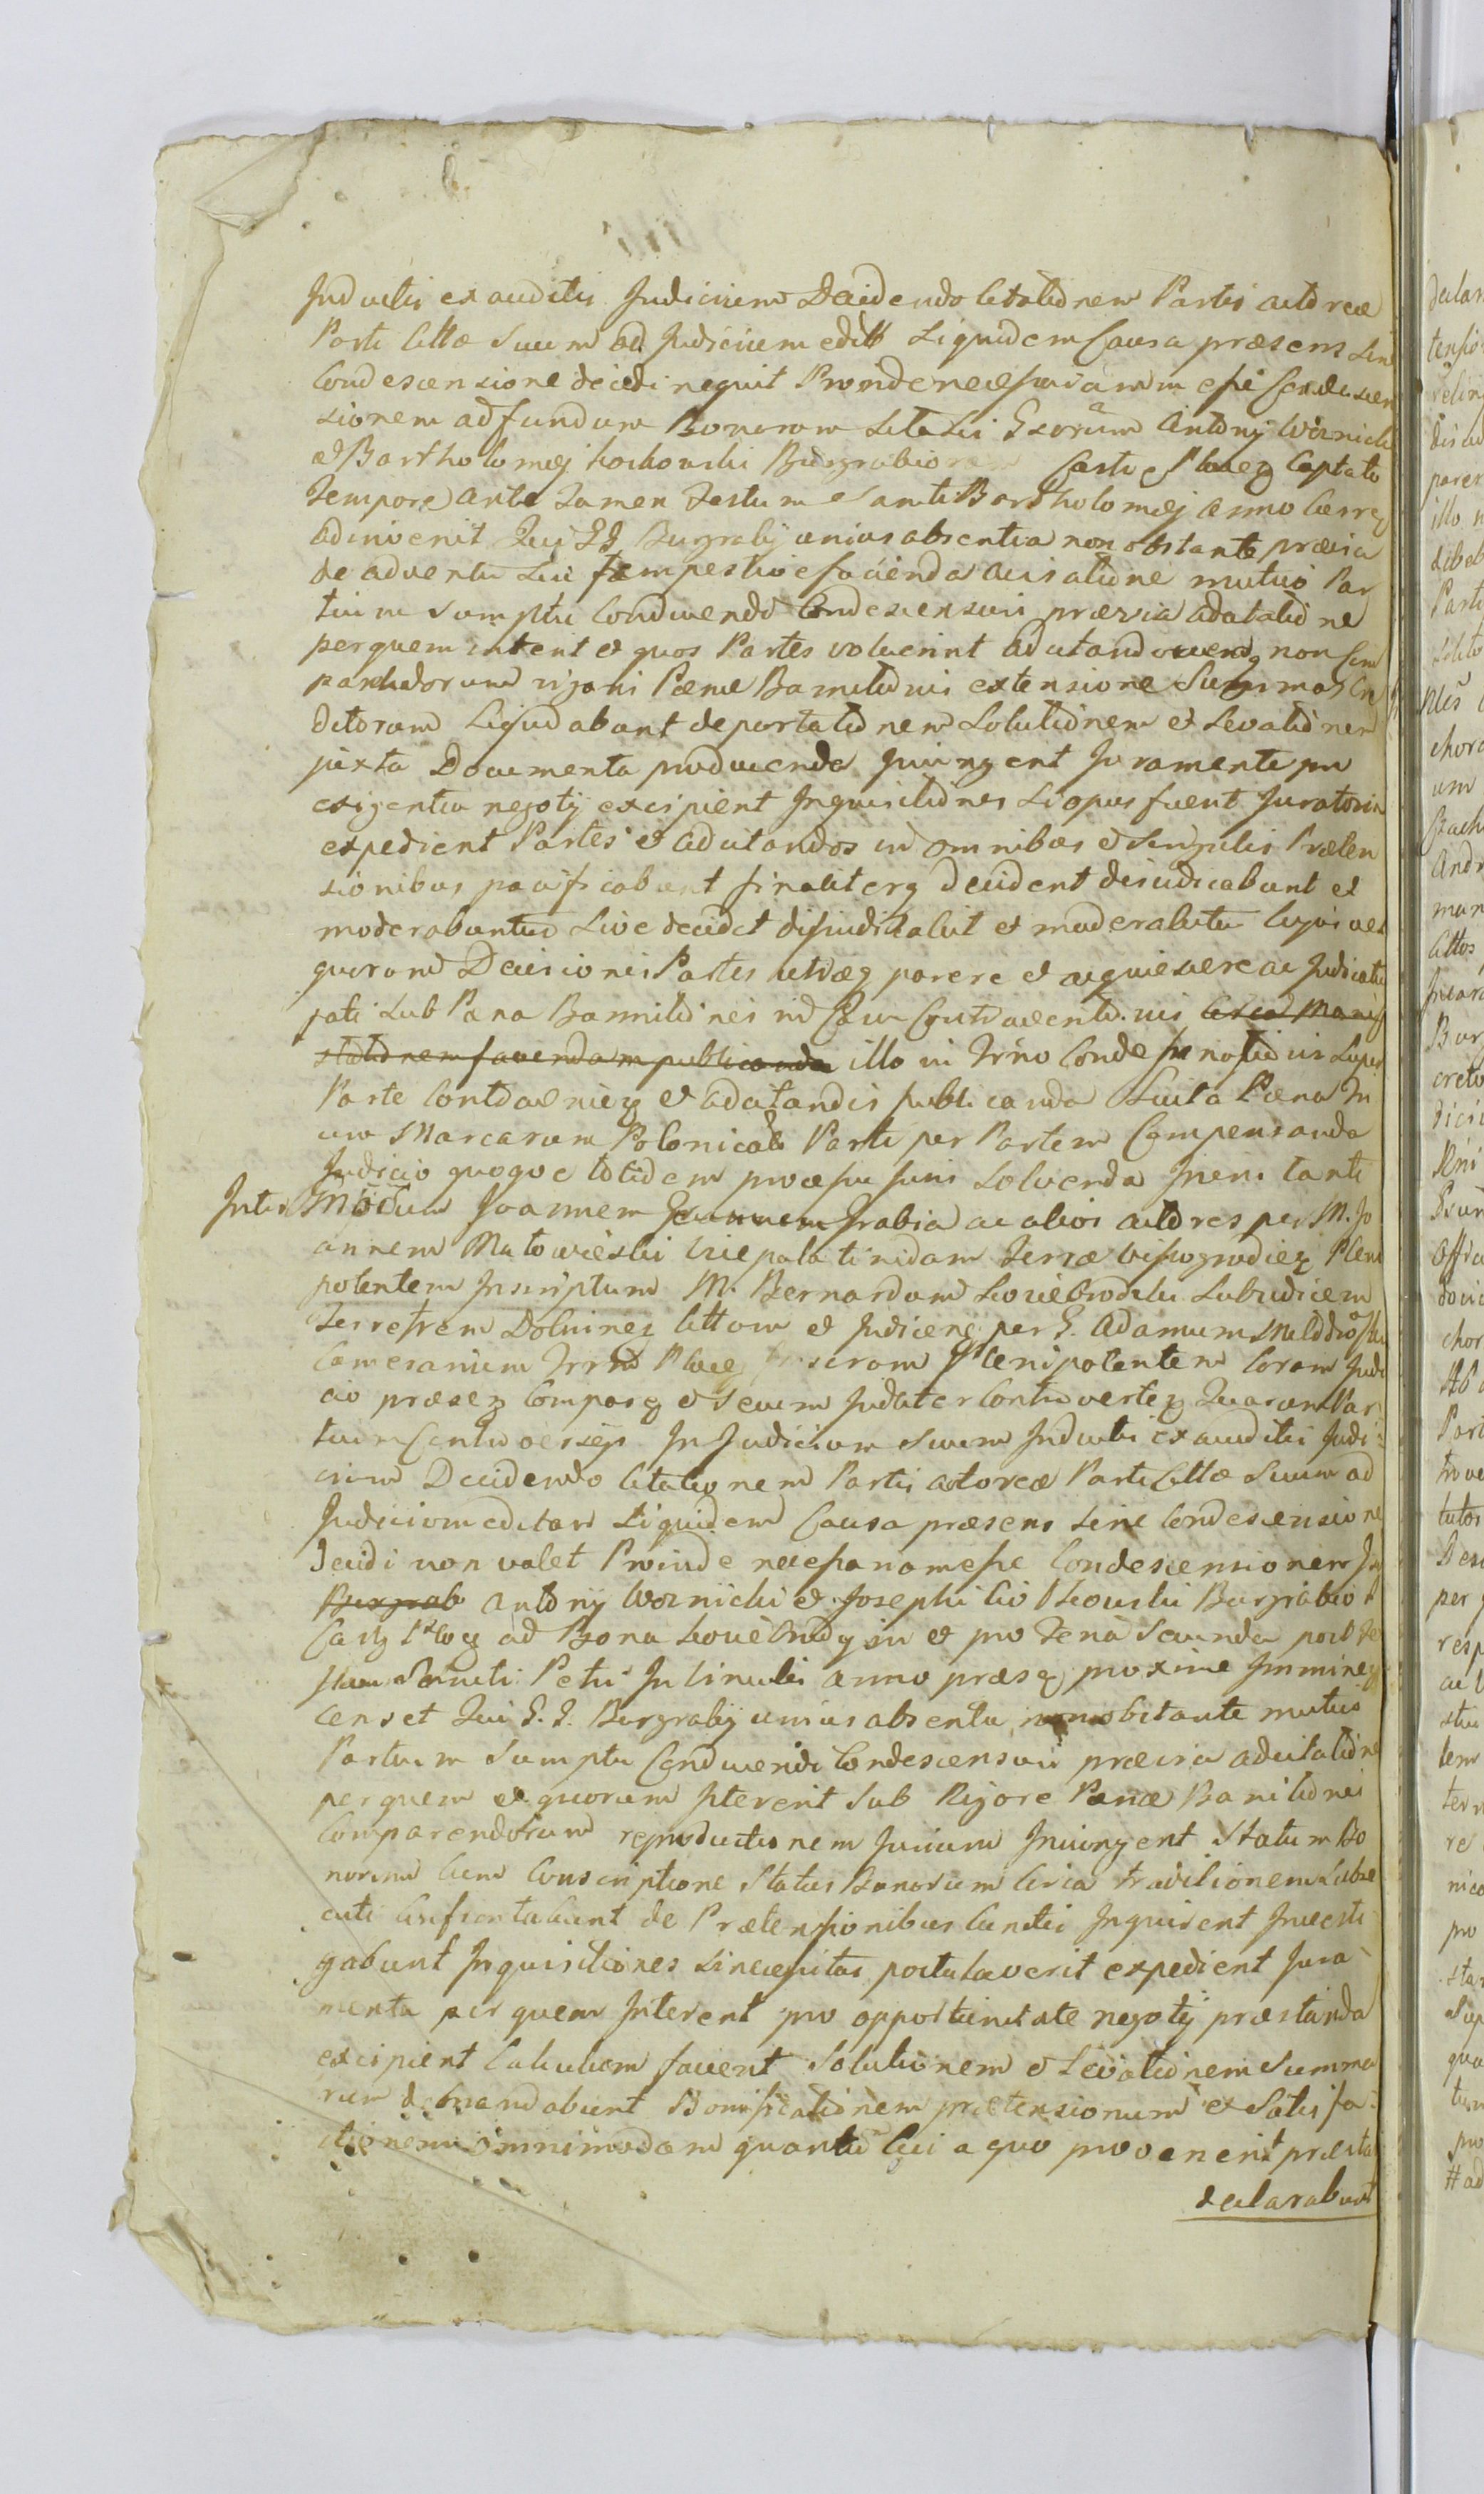 Inductis exauditis Judicium Decidendo Citationem Partis actoreæ
Parti Cittæ Suum ad Judicium edit Siquidem Causa præsens Sine
Condescensione decidi nequit Proinde necessariam esse Condescen
sionem ad fundum Bonorum Gsorum Antonij Woznicki
et Bartholomæj Burgrabiorum Castr Ploceg Captato
Tempore ante tamen Festum Sancti Bartholomæj anno Curreg
adinvenit Qui GG Burgrabij unius absentia non obstante prævia
de adventu Sui tempestive facienda avisatione mutuo Par
tium Sumptu Conducendi Condescensuri prævia adcitatione
per quem intererit et quos Partes voluerint adcitandorumq non Com
parendorum rigori Pænæ Bannitionis extensione Summas Cre
ditorum Liquidabunt deportationem Solutionem et Levationem
juxta Documenta producenda Injungent Juramenta pro
exigentia negotij excipient Inquisitiones Si opus fuerit Juratorias
expedient Partes et adcitandos in omnibus et Singulis Præten
sionibus pacificabunt finaliterq decident dijudicabunt et
moderabuntur Sive decidet dijudicabit et moderabitur Cujus vel
quorum Decisioni Partes utræq parere et acquiescere ac Judicatum
pati Sub Pæna Bannitionis in Casu Contraventionis
illo in Trno Condescensionis Super
Parte Contravenieg et adcitandis publicanda Luita Pæna
Marcarum Polonical Parti per Partem Compensanda
Judicio quoque totidem proæsse Suis Solvenda Irremis tanti
Inter Mdum Joannem Grabia ac alios actores per M. Jo
annem Mutowieski Vicepalatinidam Terræ Wissogrodieg Pleni
potentem Inscriptum M. Bernardum Subjudicem
Terrestrem Dolnineg Cittum et Judiceng per G. Adamum
Camerarium Trrm Ploceg Plenipotentem Coram Judi
cio præseg Comparg et Secum Judter Controverteg Quarum Par
tium Controversijs In Judicium Suum Inductis exauditis Judi
cium Decidendo Citationem Partis actoreæ Parti Cittæ Suum ad
Judicium editam Siquidem Causa præsens Sine Condescensione
decidi non valet Proinde necessariam esse Condescensionem
Burgrab Antonij Woznicki et Josephi Burgrabior
Castr Plog ad Bona in et pro Feria Secunda post Fe
stum Sancti Petri In Vinculis anno præsg proxime Immineg
Censet Qui G. G. Burgrabij unius absentia non obstante mutuo
Partium Sumptu Conducendi Condescensuri prævia adcitatione
per quem et quorum Intererit Sub Rigore Pænæ Banitionis
Comparendorum reproductionem Jurium Injungent Statum Bo
norum Cum Conscriptione Status Bonorum Circa traditionem
confrontabunt de Prætensionibus Cunctis Inquirent Investi
gabunt Inquisitiones Si necessitas postulaverit expedient Jura
menta per quem Intererit pro opportunitate negotij præstanda
excipient Calculum facient Solutionem et Levationem Summa
rum demandabunt Bonificationem prætensionum et Satisfa
ctionem omnimodam quantu Cui a quo provenerit præsta
declarabunt